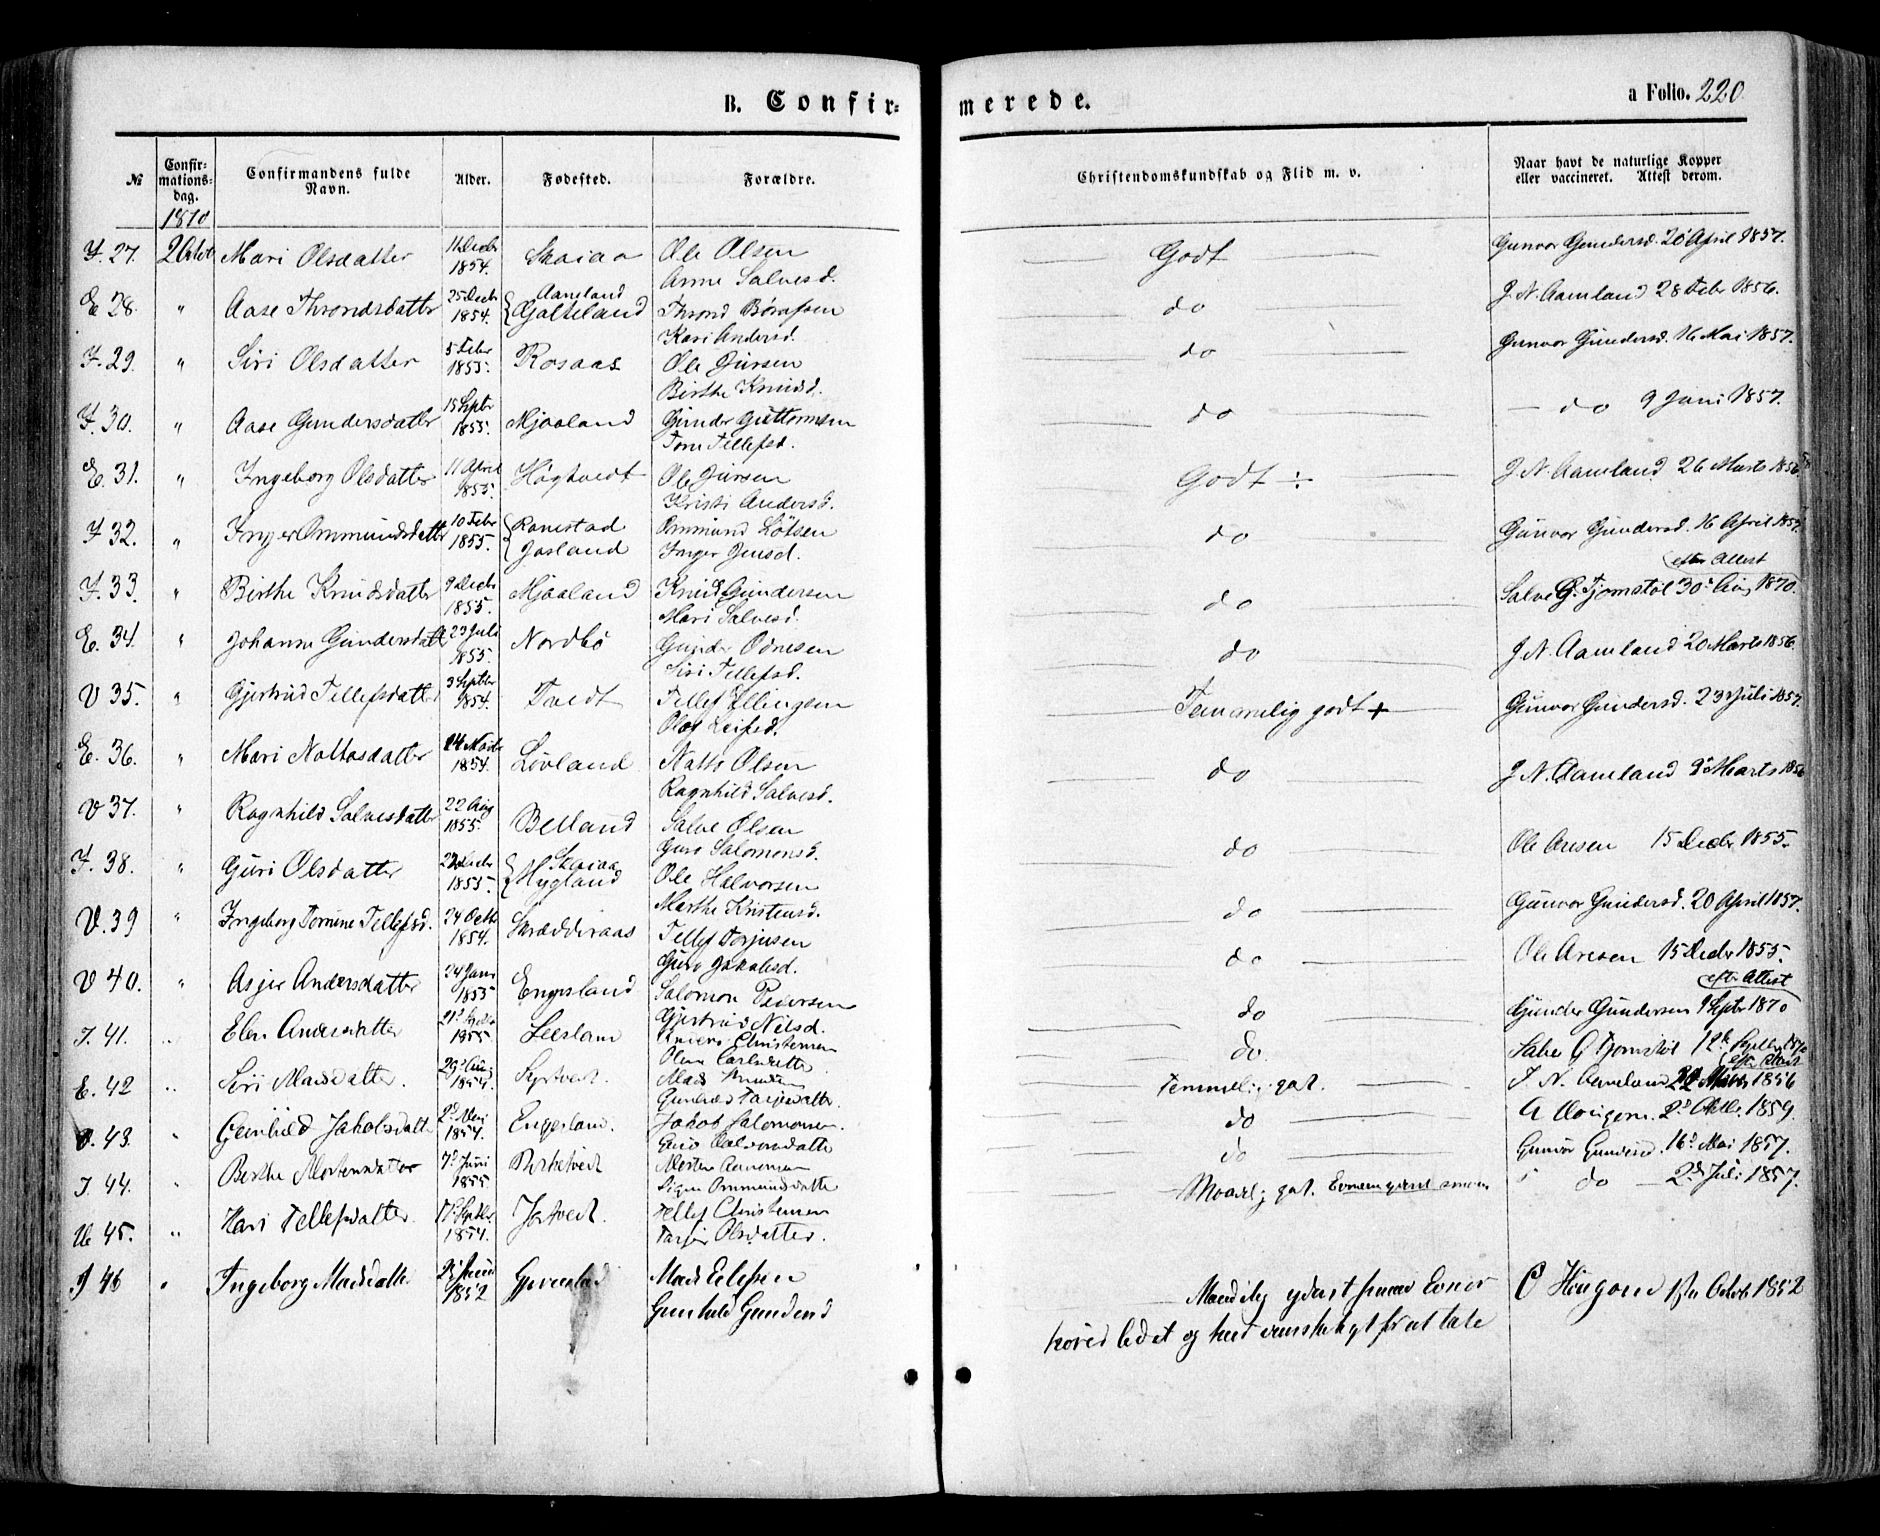 B. Confir-
merede.
a Folio. 220
№
Confir-
mations-
dag.
Confirmandens fulde
Navn.
Alder.
Fødested.
Forældre.
Christendomskundskab og Flid m. v.
Naar havt de naturlige Kopper
eller vaccineret. Attest derom.
1870
F. 27. 2 Octbr Mari Olsdatter 11 Decbr 1854. Skaiaa Ole Olsen Anne Salvesd. Godt Gunvor Gundersd. 20 April 1857.
E 28. " Aase Throndsdatter 25 Decbr 1854. { Aaneland Galteland Thrond Børufsen Kari Andersd. do J. N. Aamland 28 Febr 1856.
F. 29. " Siri Olsdatter 5 Febr 1855. Rosaas Ole Jursen Birthe Knudsd. do Gunvor Gundersd. 16 Mai 1857.
F. 30. " Aase Gundersdatter 15 Septbr 1855. Mjaaland Gunder Guttormsen Tone Tellefsd. do - do 9 Juni 1857.
E. 31. " Ingeborg Olsdatter 11 April 1855. Høgtvedt Ole Jursen Kristi Andersd. Godt ÷ J. N. Aamland 26 Marts 1856
F 32. " Inger Ommundsdatter 10 Febr 1855. { Ranestad Josland Ommund Løtsen Inger Jensd. do Gunvor Gundersd. 16 April 1857.
F. 33. " Birthe Knudsdatter 9 Decbr 1855. Mjaaland Knud Gundersen Mari Salvesd. do efter Attest Salve G. Tjomstøl 30 Aug 1870.
E. 34. " Johanne Gundersdatter 23 Juli 1855. Nordbø Gunder Odnesen Siri Tellefsd. do J. N. Aamland 20 Marts 1856.
V 35. " Gjertrud Tellefsdatter 3 Septbr 1854. Tvedt Tellef Ellingsen Olog Leifsd. Temmelig godt + Gunvor Gundersd. 23 Juli 1857.
E. 36. " Mari Nottosdatter 14 1854. Løvland Notto Olsen Ragnhild Salvesd. do J. N. Aamland 9 Marts 1856
V 37. " Ragnhild Salvesdatter 22 Aug 1855. Belland Salve Olsen Guro Salomonsd. do Ole Aresen 15 Decbr 1855.
F. 38. " Guri Olsdatter 22 Decbr 1855. { Skaiaa Mygland Ole Halvorsen Marthe Kristensd. do Gunvor Gundersd. 20 April 1857.
V. 39 " Ingeborg Tomine Tellefsd. 24 Octb 1854. Skrædderaas Tellef Torjusen Guro Jakobsd. do Ole Aresen 15 Decbr 1855.
V 40. " Asjer Andersdatter 24 Janu 1855 Engesland Salomon Pedersen Gjertrud Nilsd. do efter Attest Gunder Gundersen 9 Septr 1870
I. 41. " Elen Andersdatter 21 1855 Leesland Anders Christensen Olene Carlsdatter do Salve G Tjomstøl 12te 1870 efter Attest
E. 42 " Siri Madsdatter. 29 Aug 1854. Mads Knudsen Gunhild Tarjesdatter. Temmelig godt. J. N. Aamland 22 Marts 1856
V. 43. " Gunhild Jakobsdatter 2d 1854. Engesland. Jakob Salomonsen. do 2d Oktbr. 1859.
I. 44. " Berthe Mortensdatter 7d Juni 1855 Birketvedt Morten Aanensen Signe Ommundsdatter do Gunvor Gundersd. 16d Mai 1857.
V. 45. " Kari Tellefsdatter. 17 Septbr 1854. Tellef Christensen Olsdatter. Maadelig godt. do 2d Juli 1857.
I 46 " Ingeborg Madsdatter 1852 Mads Gunhild Gundersd Maadelig yderst smaa Evner og har vanskeligt for at tale O Hougane Octob 1852